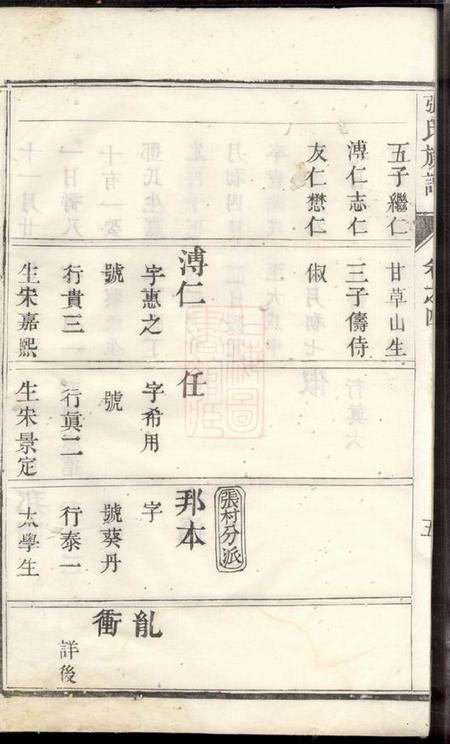 張氏族譜
卷之四
五
五子繼仁
溥仁志仁
友仁懋仁
甘草山生
三子儔侍
俶
溥仁
字惠之
號
行貴三
生宋嘉熙
任
字希用
號
行眞二
生宋景定
張村分派
邦本
字
號葵丹
行泰一
太學生
亂
衝
詳後